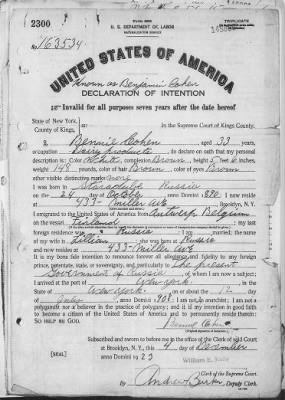 2300
U. S. DEPARTMENT OF LABOR
NATURALIZATION SERVICE
TRIPLICATE
No. 163534
UNITED STATES OF AMERICA
Known as Benjamin Cohen
DECLARATION OF INTENTION
Invalid for all purposes seven years after the date hereof
State of New York,
County of Kings,
In the Supreme Court of Kings County.
I, Bennie Cohen, aged 33 years,
occupation Dairy products, do declare on oath that my personal
description is: Color White, complexion Brown, height 5 feet 6 inches,
weight 148 pounds, color of hair Brown, color of eyes Brown
other visible distinctive marks none
I was born in Staradube Russia
on the 26 day of October, anno Domini 1890; I now reside
at 433 - Miller Ave, Brooklyn, N.Y.
I emigrated to the United States of America from Antwerp Belgium
on the vessel Finland; my last
foreign residence was Russia; I am married; the name
of my wife is Lillian; she was born at Russia
and now resides at 433 - Miller Ave
It is my bona fide intention to renounce forever all allegiance and fidelity to any foreign
prince, potentate, state, or sovereignty, and particularly to The present
Government of Russia, of whom I am now a subject;
I arrived at the port of New-york, in the
State of New-york, on or about the 12 day
of, anno Domini 1908; I am not an anarchist; I am not a
polygamist nor a believer in the practice of polygamy; and it is my intention in good faith
to become a citizen of the United States of America and to permanently reside therein:
SO HELP ME GOD.
Bennie Cohen
Subscribed and sworn to before me in the office of the Clerk of said Court
at Brooklyn, N.Y., this 4 day of December
anno Domini 1923
[SEAL]
Clerk of the Supreme Court.
By Andrew, Deputy Clerk.